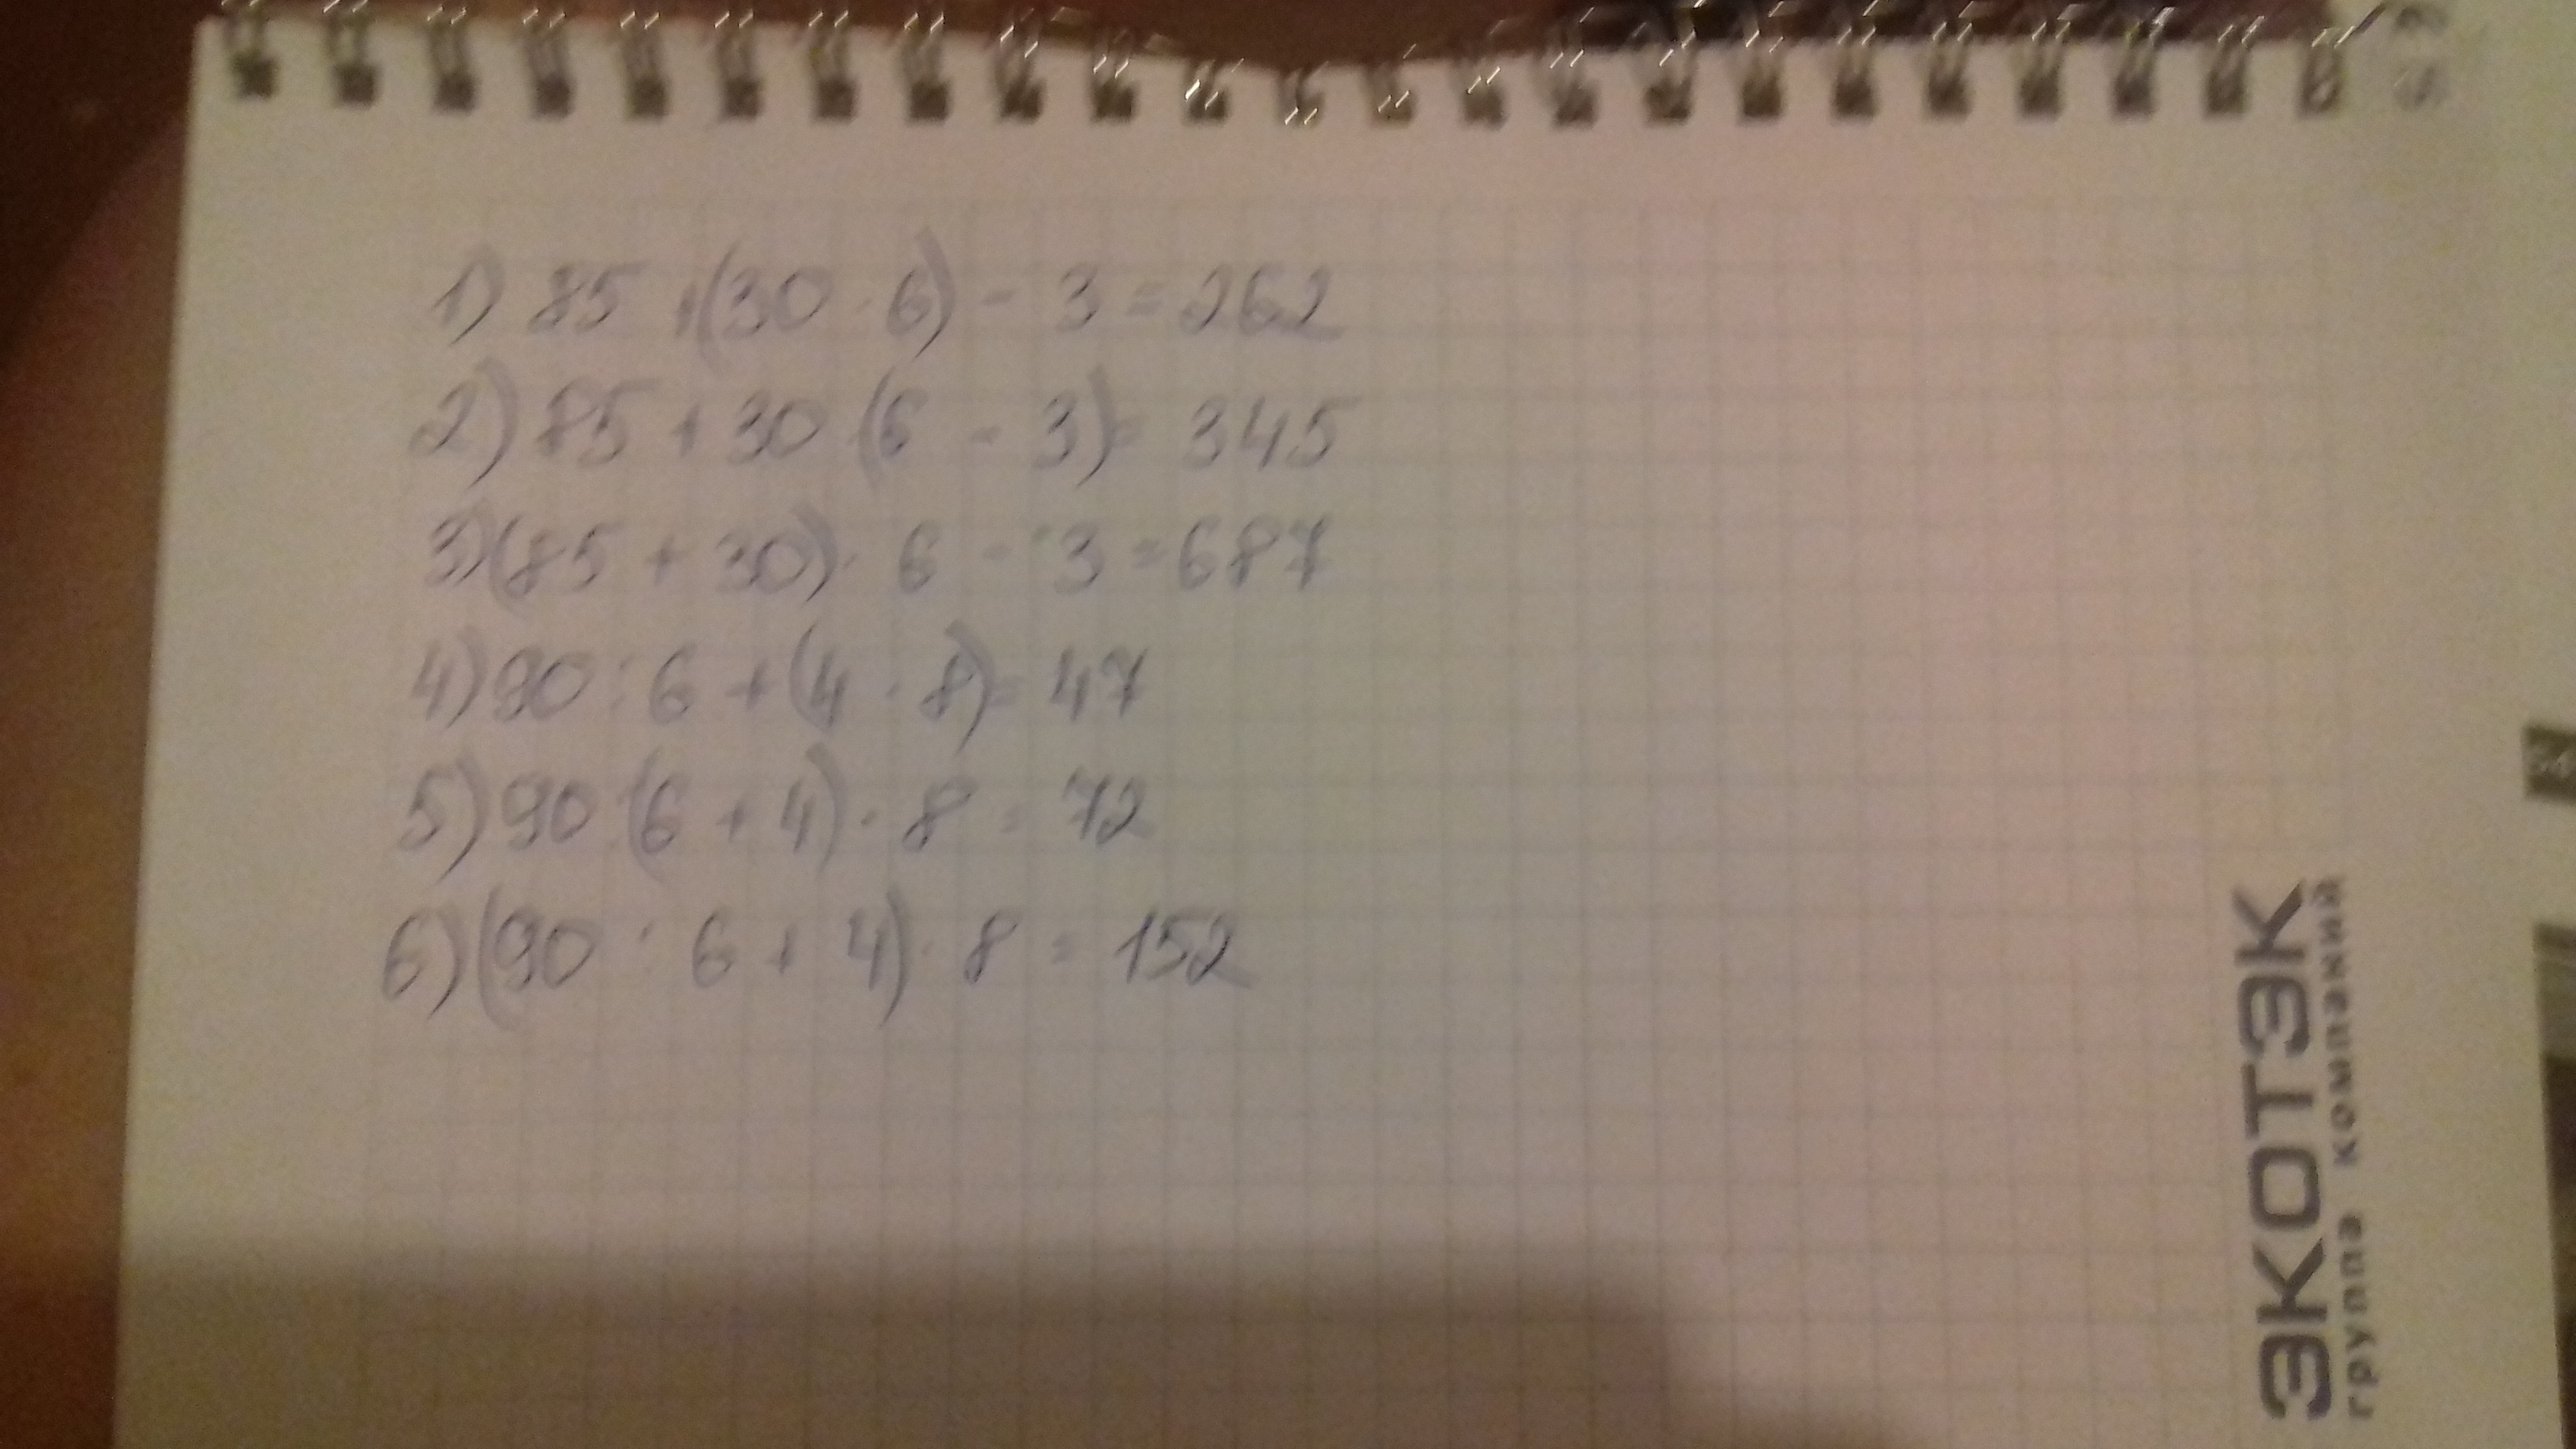 1) 85 + (30 · 6) - 3 = 262
2) 85 + 30 · (6 - 3) = 345
3) (85 + 30) · 6 - 3 = 687
4) 90 : 6 + (4 · 8) = 47
5) 90 : (6 + 4) · 8 = 72
6) (90 : 6 + 4) · 8 = 152
ЭКОТЭК
группа компаний